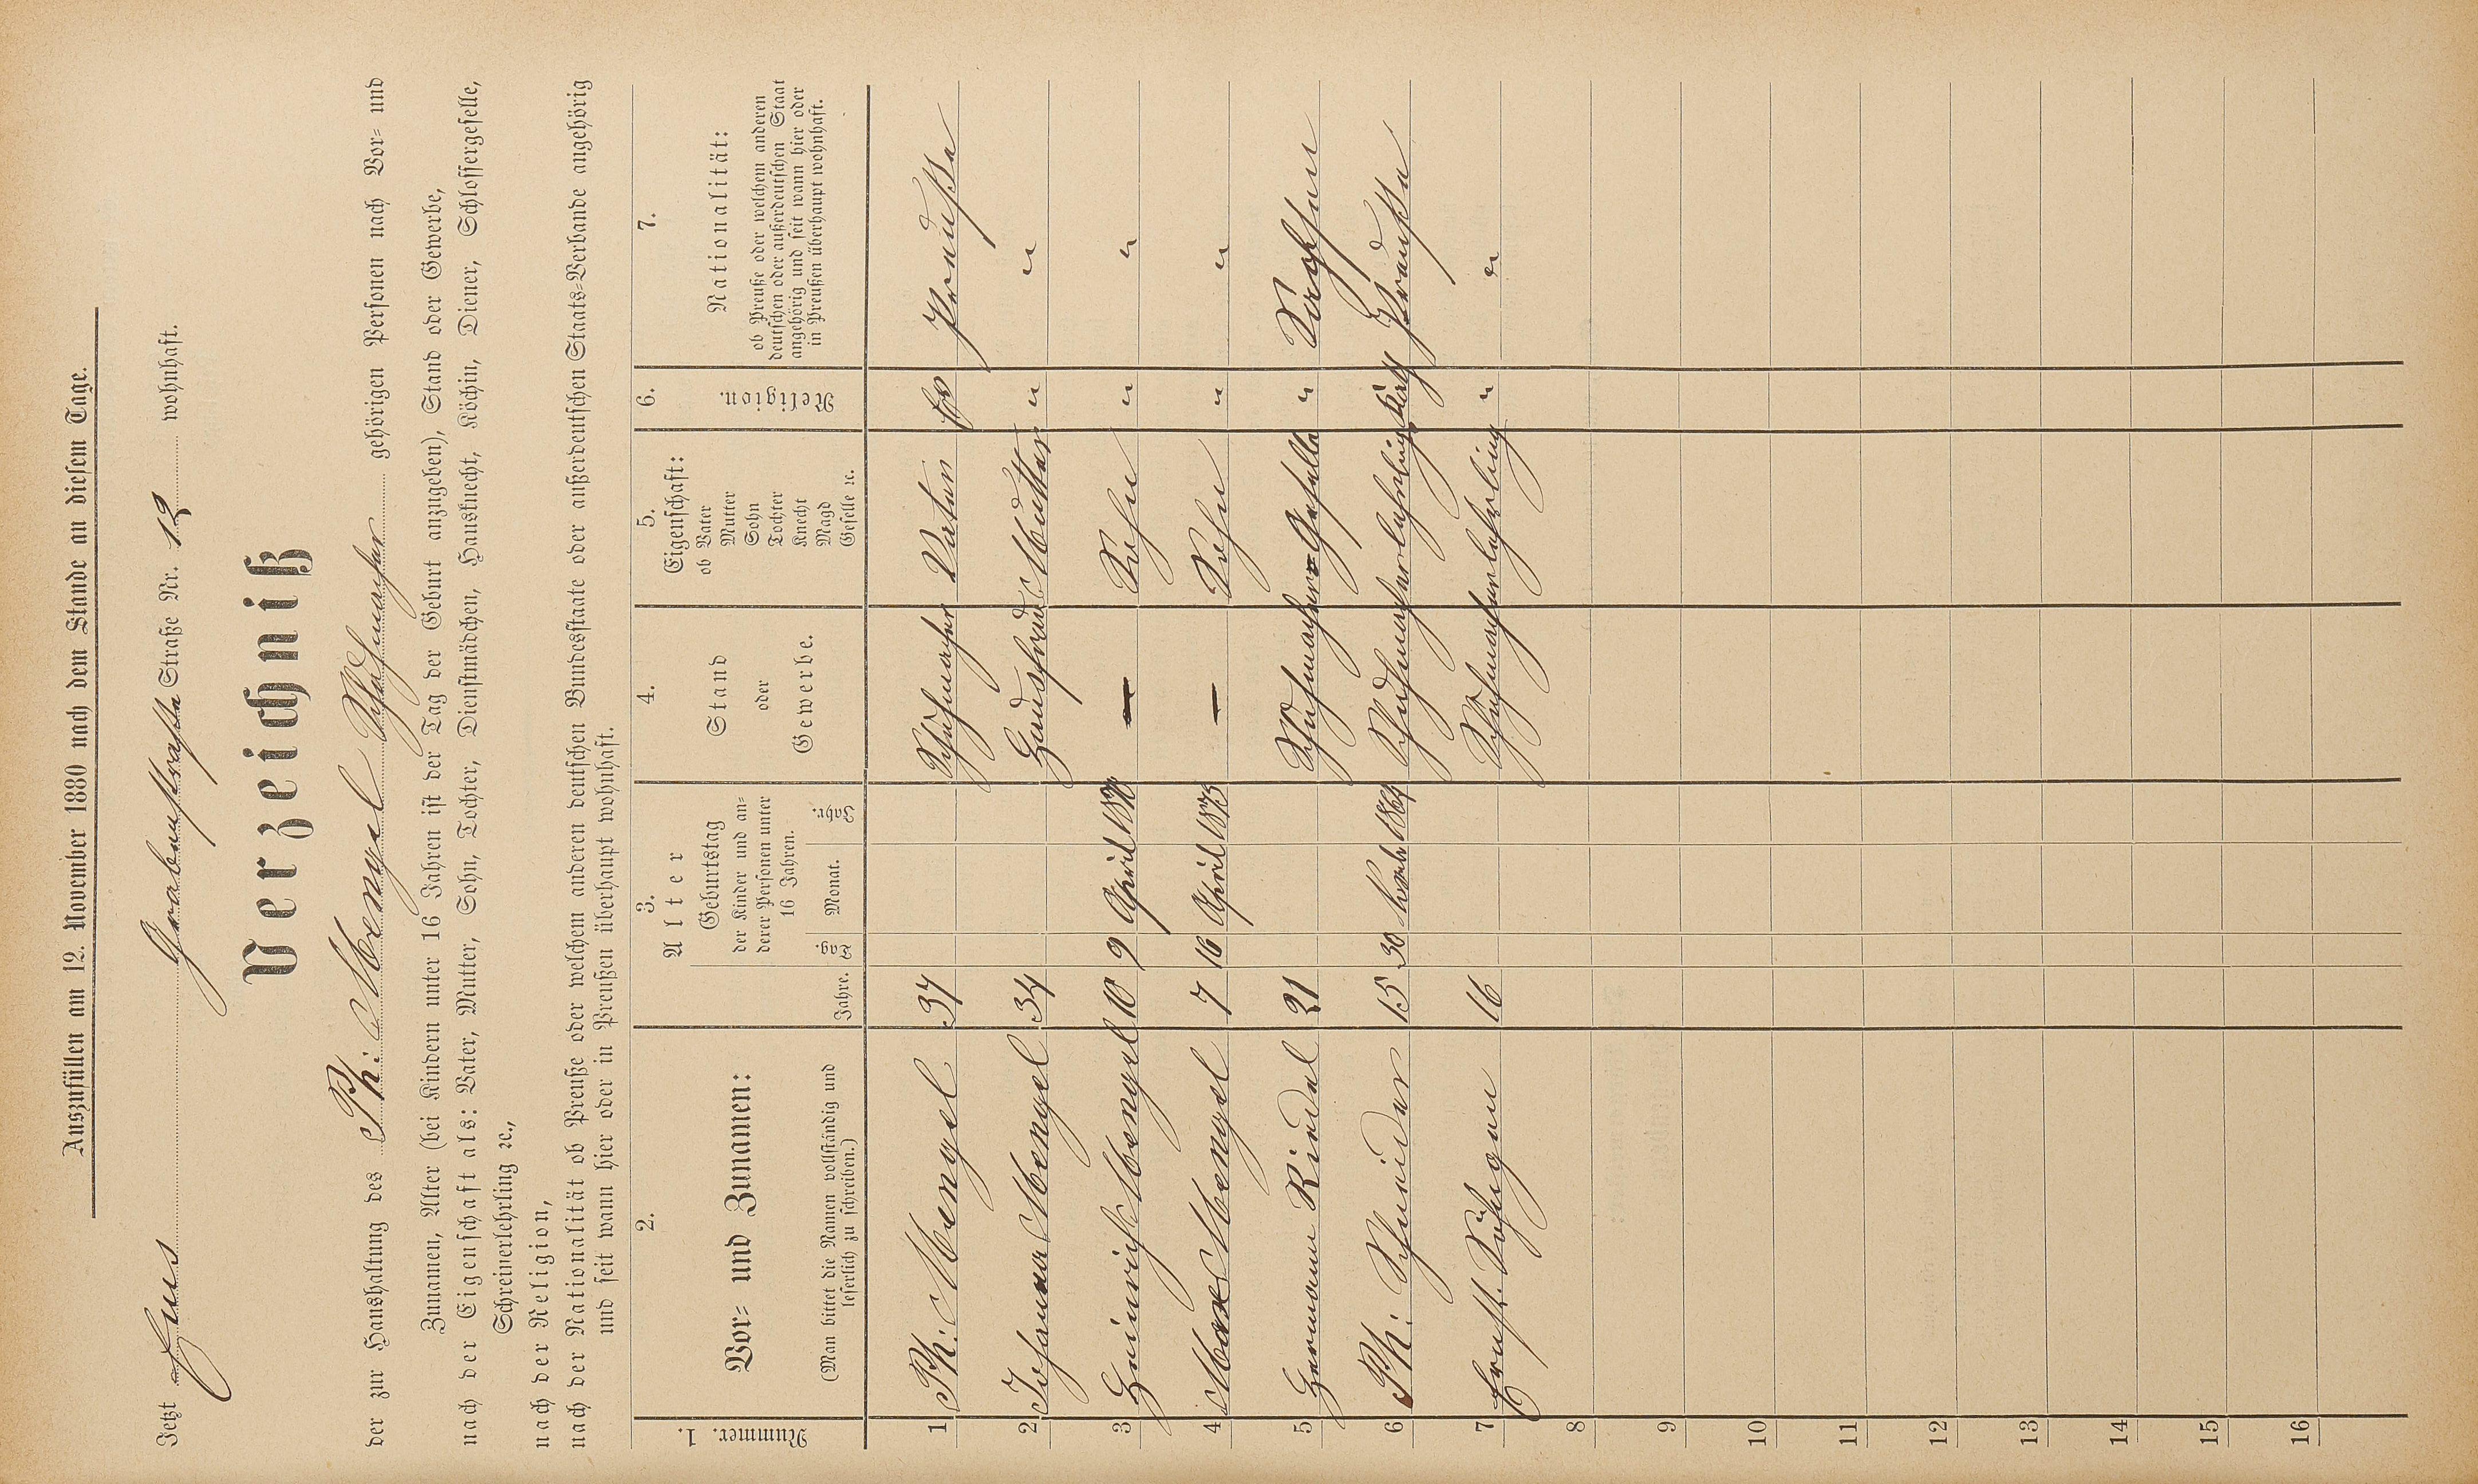 Auszufüllen am 12. November 1880 nach dem Stande an diesem Tage.
Jetzt Ems Grabenstraße Straße Nr. 12 wohnhaft.
Verzeichniß
der zur Haushaltung des Ph: Mengel Schuhmacher gehörigen Personen nach Vor= und
Zunamen, Alter (bei Kindern unter 16 Jahren ist der Tag der Geburt anzugeben), Stand oder Gewerbe,
nach der Eigenschaft als: Vater, Mutter, Sohn, Tochter, Dienstmädchen, Hausknecht, Köchin, Diener, Schlossergeselle,
Schreinerlehrling ꝛc.,
nach der Religion,
nach der Nationalität ob Preuße oder welchem anderen deutschen Bundesstaate oder außerdeutschen Staats=Verbande angehörig
und seit wann hier oder in Preußen überhaupt wohnhaft.
1. Nummer.
2. Vor= und Zunamen:
(Man bittet die Namen vollständig und
leserlich zu schreiben.)
3. Alter
Jahre.
Geburtstag
der Kinder und an=
derer Personen unter
16 Jahren.
Tag. Monat. Jahr.
4. Stand
oder
Gewerbe.
5. Eigenschaft:
ob Vater
Mutter
Sohn
Tochter
Knecht
Magd
Geselle ꝛc.
6. Religion.
7. Nationalität:
ob Preuße oder welchem anderen
deutschen oder außerdeutschen Staat
angehörig und seit wann hier oder
in Preußen überhaupt wohnhaft.
1 Ph: Mengel 37 Schuhmacher Vater Ev Preuße
2 Johanna Mengel 34 Hausfrau Mutter " "
3 Heinrich Mengel 10 9 April 1870 — Sohn " "
4 Max Mengel 7 16 April 1873 — Sohn " "
5 Hermann Riedel 21 Schuhmacher=Geselle " Sachsen
6 Ph: Schneider 15 30 1864 Schuhmacherlehrling Kath Preuße
7 Ernst 16 Schuhmacherlehrling " "
8
9
10
11
12
13
14
15
16